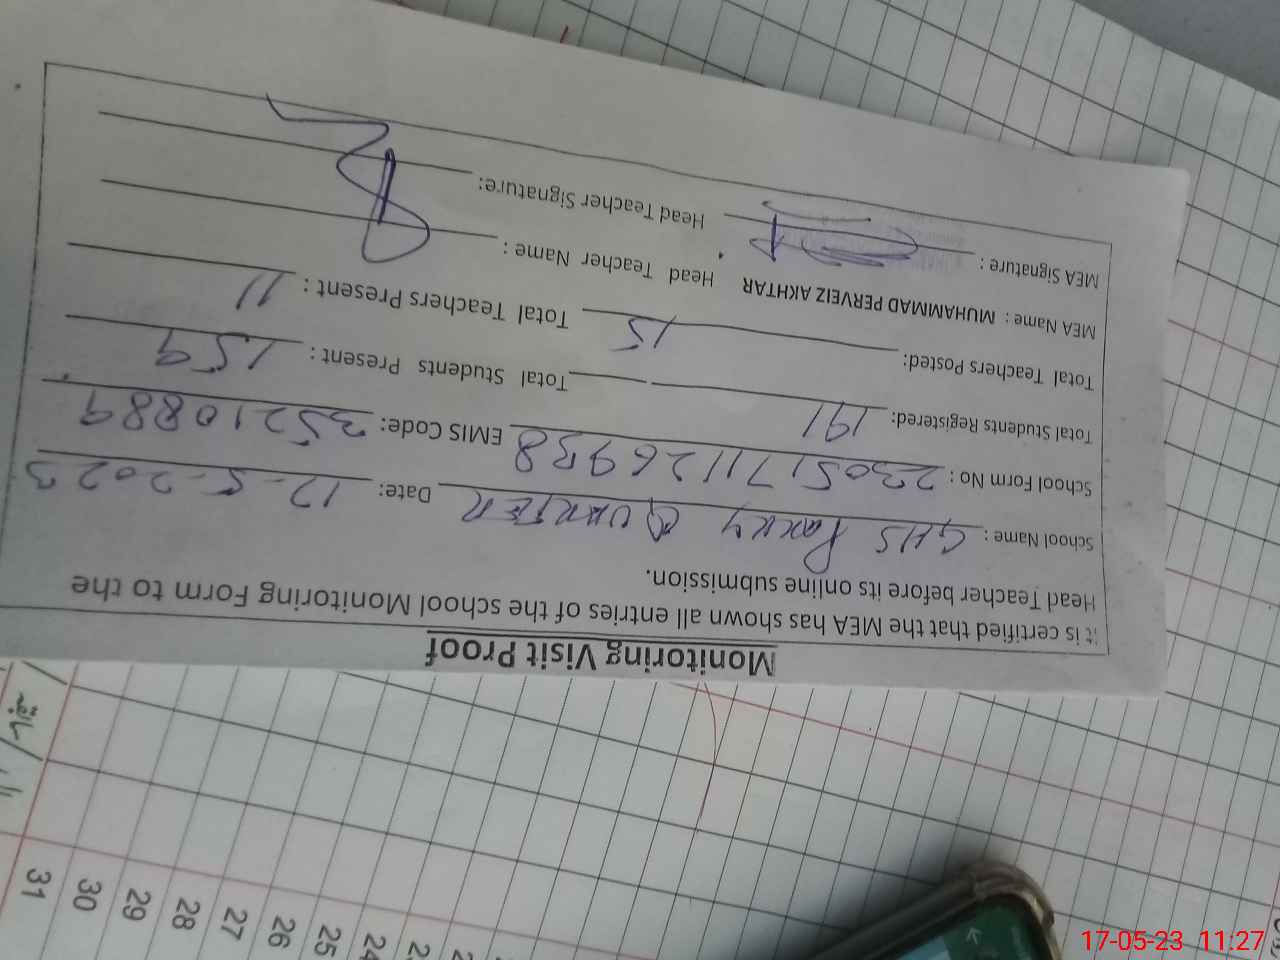 Monitoring Visit Proof
It is certified that the MEA has shown all entries of the school Monitoring Form to the
Head Teacher before its online submission.
School Name : GHS QUARTER Date: 17-5-2023
School Form No : 2305171126938 EMIS Code: 35210889
Total Students Registered: 191 Total Students Present : 159
Total Teachers Posted: 15 Total Teachers Present : 11
MEA Name : MUHAMMAD PERVEIZ AKHTAR Head Teacher Name :
MEA Signature : Head Teacher Signature:
24 25 26 27 28 29 30 31
17-05-23 11:27